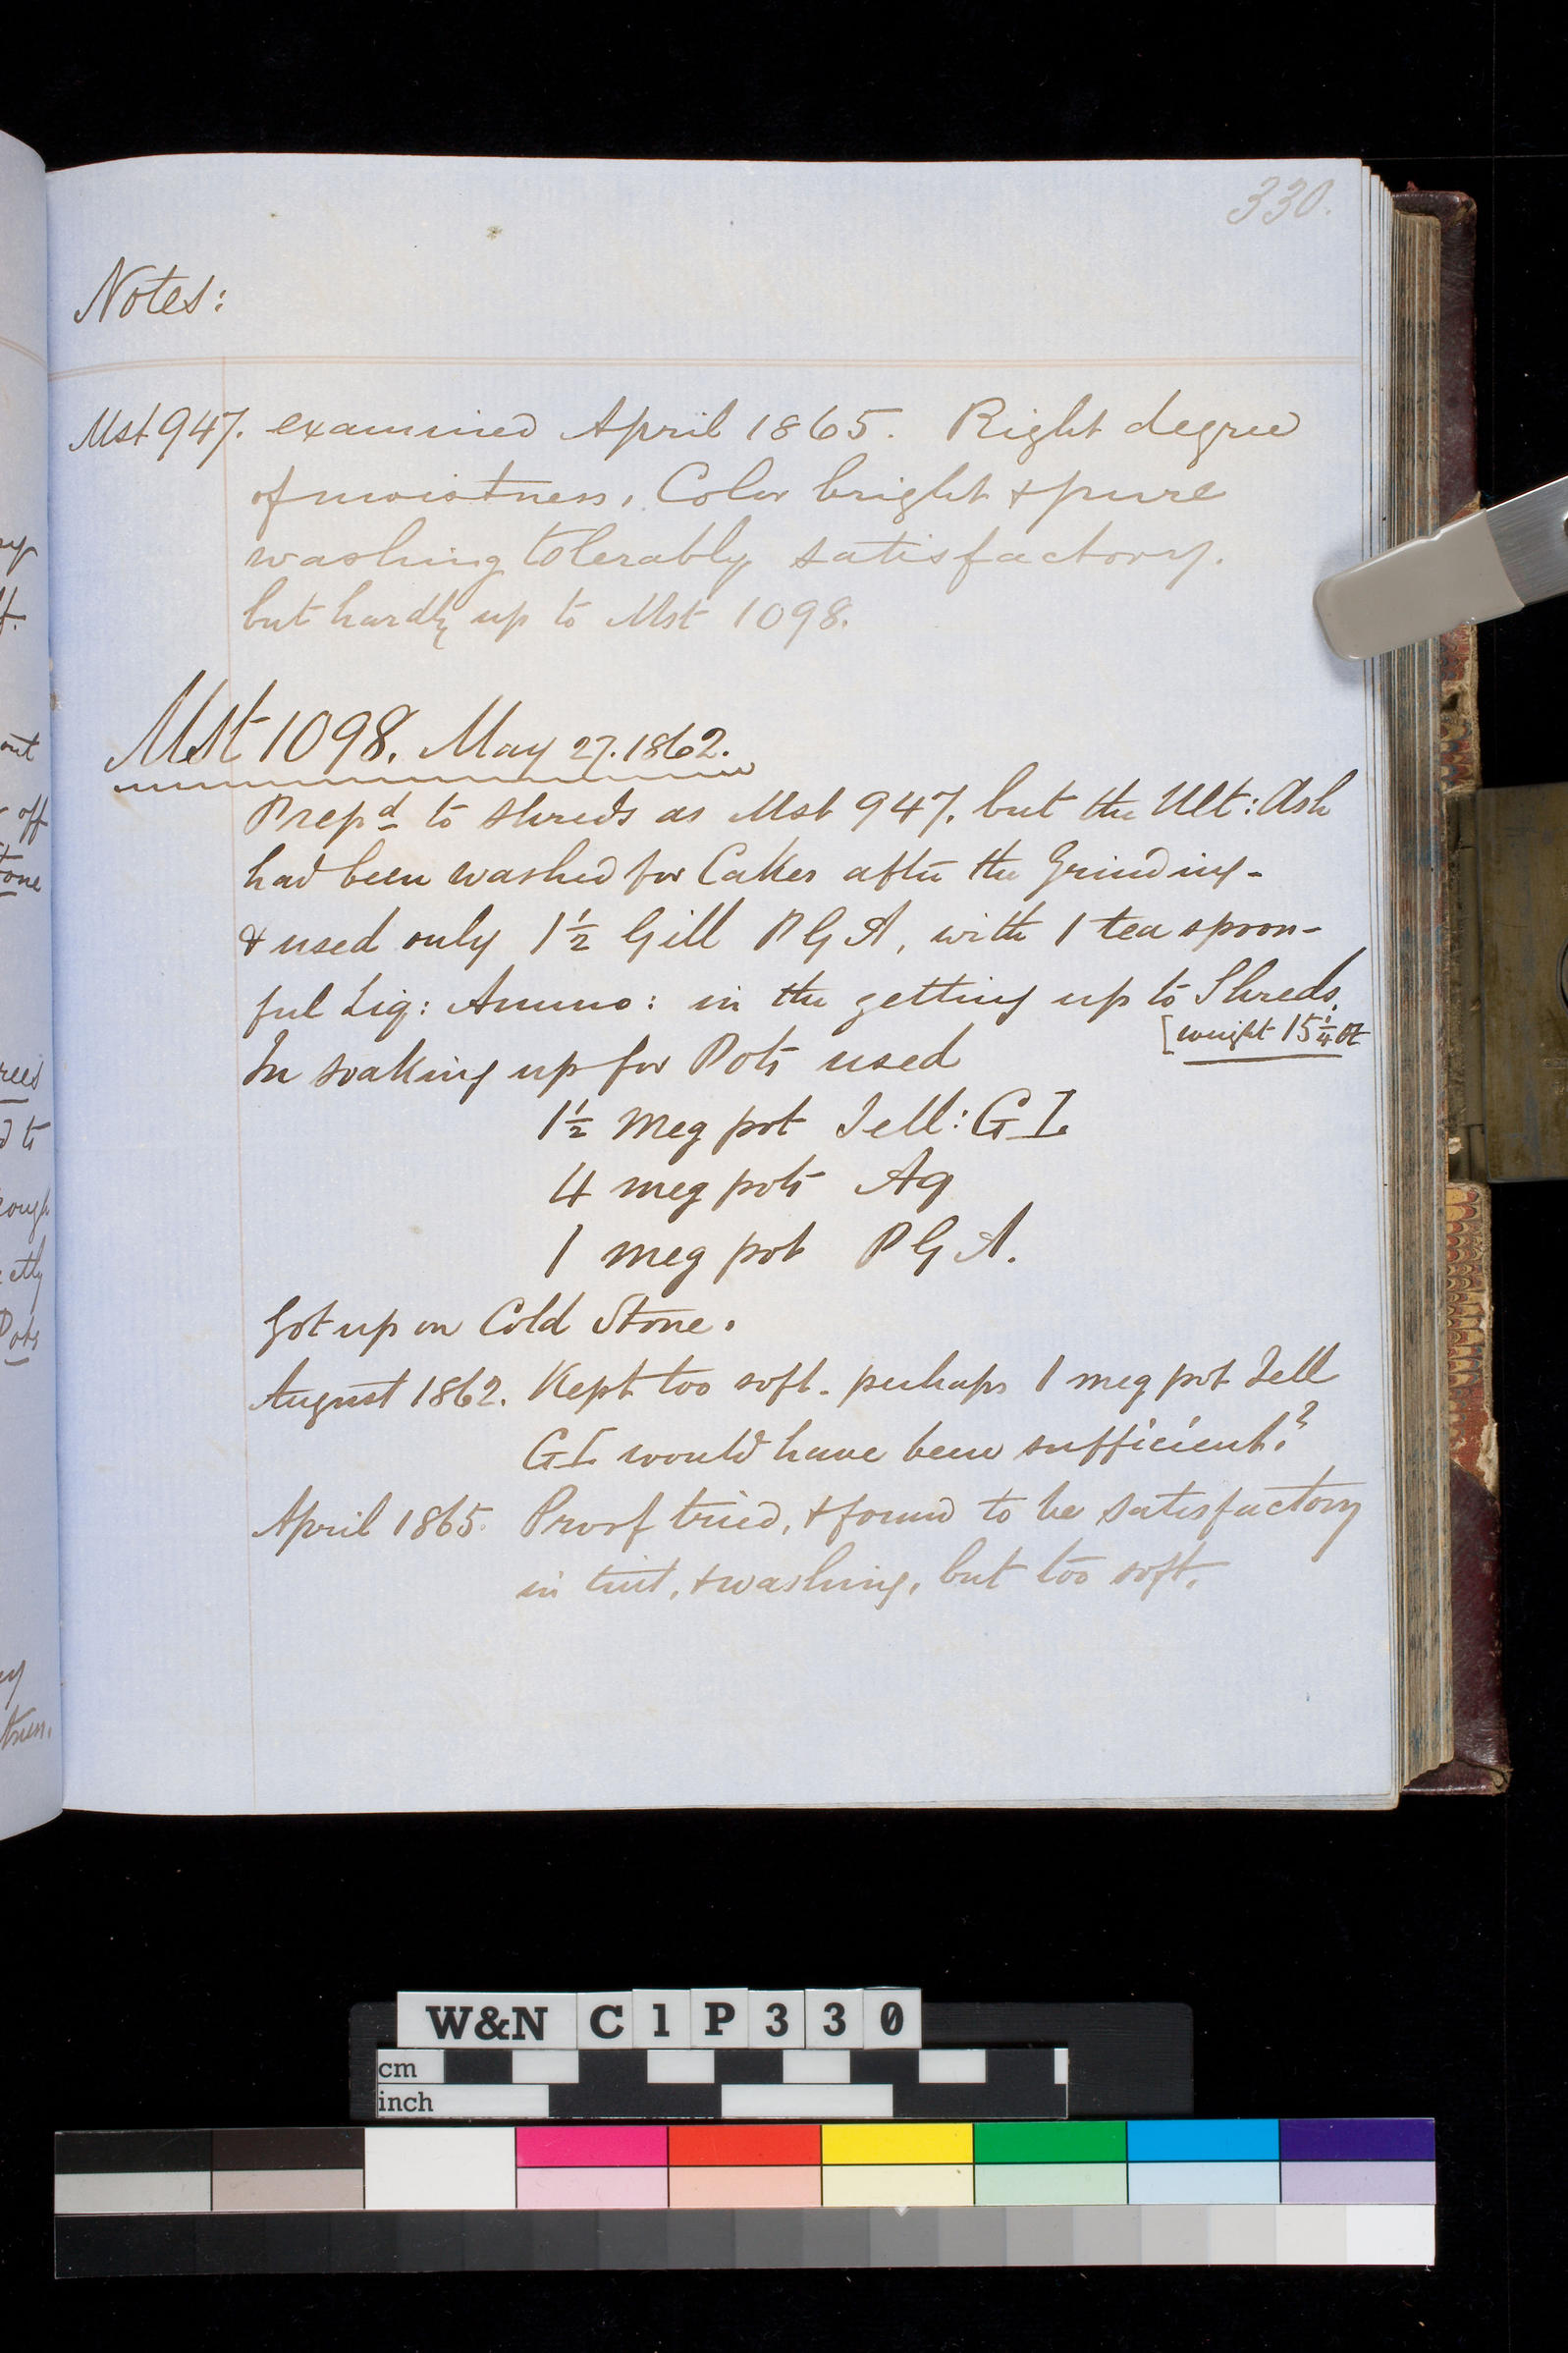 330.
Notes:
Mst 947. examined April 1865. Right degree
of moistness, Color bright & pure
washing tolerably satisfactory.
but hardly up to Mst 1098.
Mst 1098. May 27. 1862.
Prepd to shreds as Mst 947, but the Ult: Ash
had been washed for Cakes after the Grinding-
& used only 1½ Gill P G A, with 1 tea spoon-
ful Liq: Ammo: in the getting up to Shreds.
[weight 15¼ 
In soaking up for Pots used
1½ meg pot Jell: G I.
4 meg pots Aq
1 meg pot P G A.
Got up on Cold Stone.
August 1862. Kept too soft. perhaps 1 meg pot Jell
G I would have been sufficient.?
April 1865. Proof tried, & found to be satisfactory
in tint, & washing, but too soft.
out
off
tone
d to
Pots
W&N C 1 P 3 3 0
cm
inch